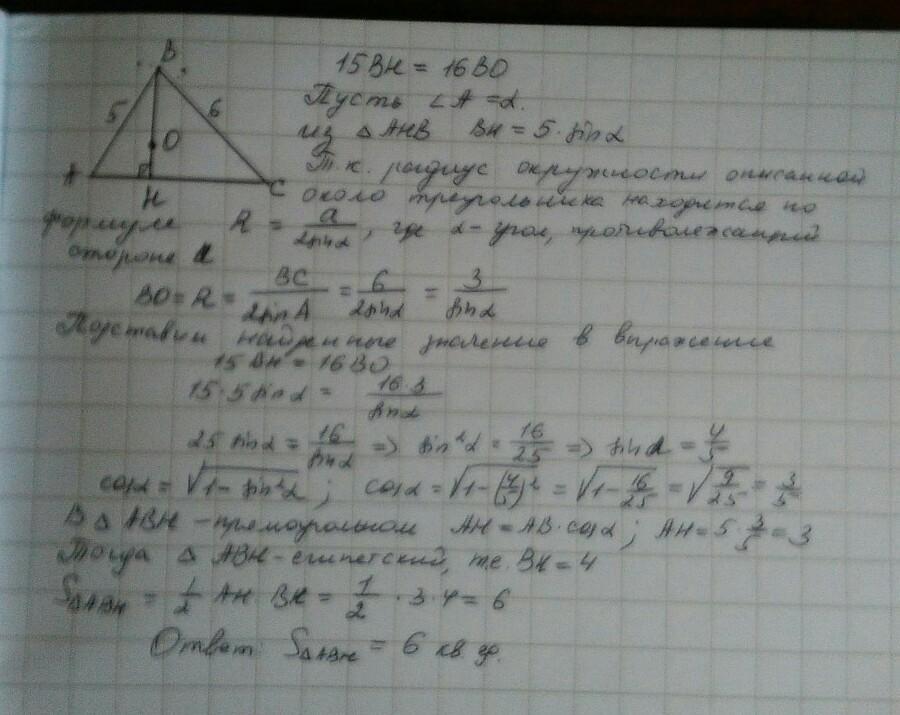 B
5
6
O
A
H
C
15BH = 16BO
Пусть ∠A = α.
из △AHB BH = 5·sinα
Т.к. радиус окружности описанной
около треугольника находится по
формуле R = a/2sinα, где α - угол, противолежащий
стороне a
BO = R = BC/2sinA = 6/2sinα = 3/sinα
Подставим найденные значение в выражение
15BH = 16BO
15·5sinα = 16·3/sinα
25 sinα = 16/sinα => sin²α = 16/25 => sinα = 4/5
cosα = √1-sin²α ; cosα = √1-(4/5)² = √1-16/25 = √9/25 = 3/5
В △ ABH - прямоугольном AH = AB·cosα ; AH = 5·3/5 = 3
Тогда △ ABH - египетский, т.е. BH = 4
S△ABH = 1/2 AH·BH = 1/2 · 3·4 = 6
Ответ: S△ABH = 6 кв ед.